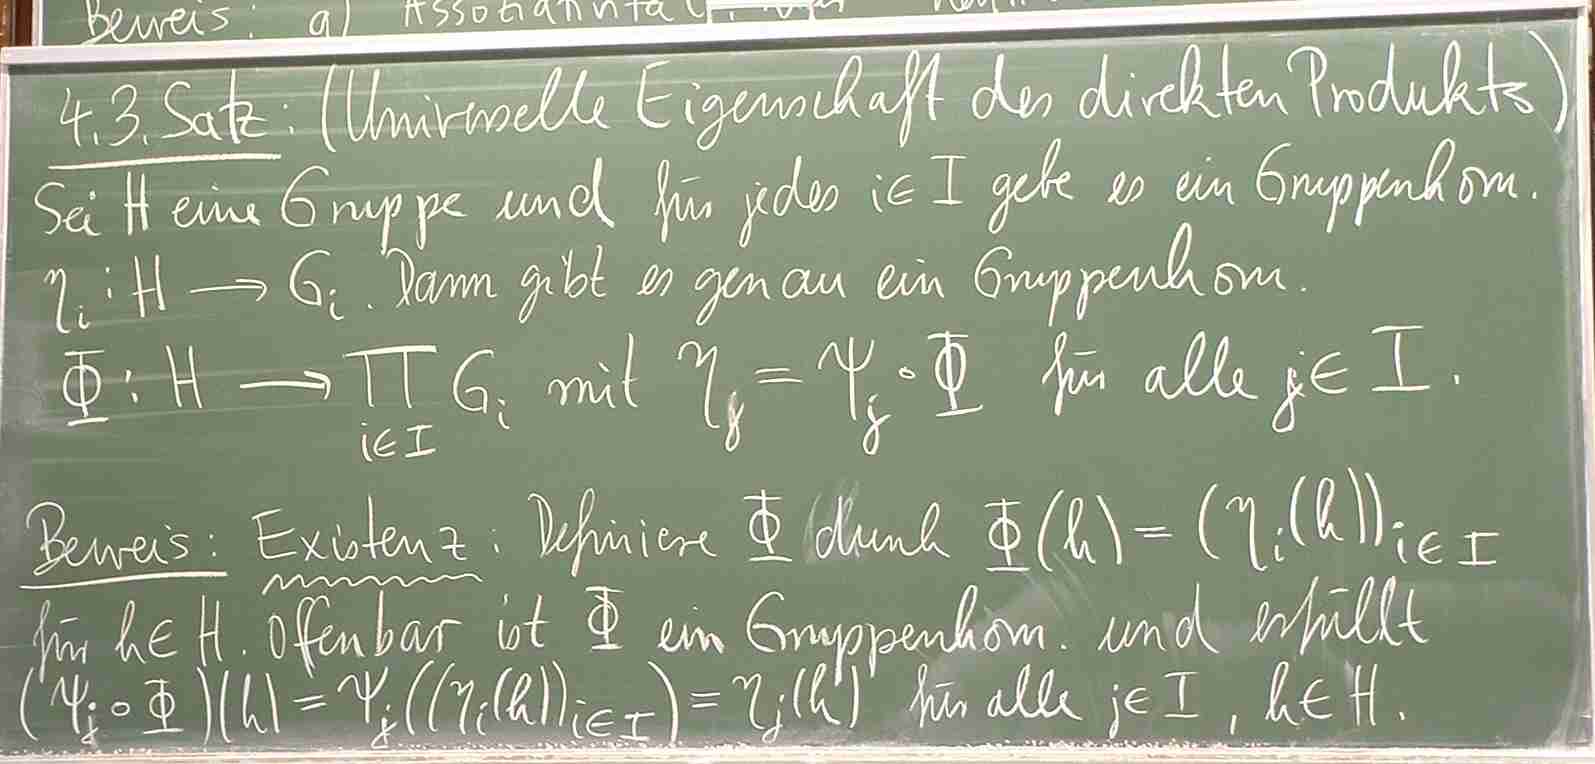 Beweis: a) Assoziativität
4.3. Satz: (Universelle Eigenschaft des direkten Produkts)
Sei H eine Gruppe und für jedes i∈I gebe es ein Gruppenhom.
η_i : H → G_i. Dann gibt es genau ein Gruppenhom.
Φ : H → ∏_{i∈I} G_i mit η_j = Ψ_j ∘ Φ für alle j∈I.
Beweis: Existenz: Definiere Φ durch Φ(h) = (η_i(h))_{i∈I}
für h∈H. Offenbar ist Φ ein Gruppenhom. und erfüllt
(Ψ_j ∘ Φ)(h) = Ψ_j((η_i(h))_{i∈I}) = η_j(h) für alle j∈I, h∈H.